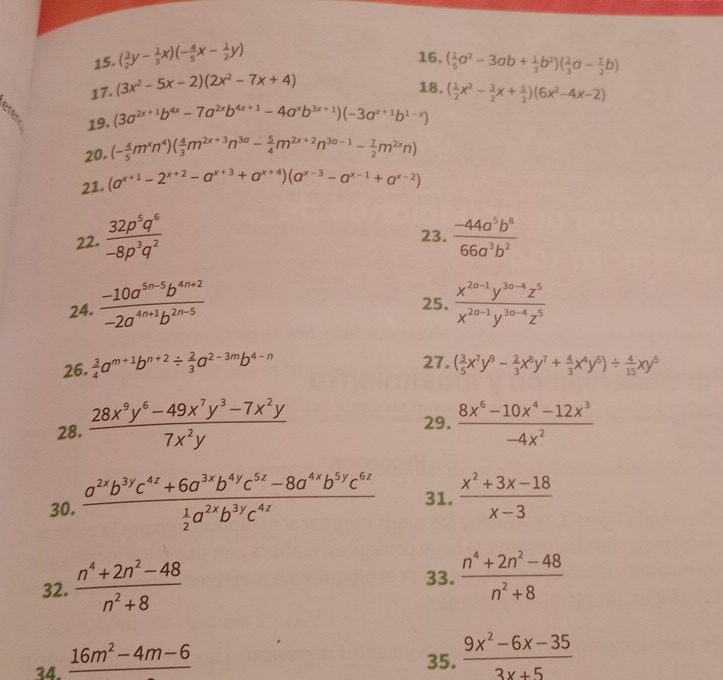 15. (3/2y − 1/3x)(−4/5x − 1/2y)
16. (1/5a² − 3ab + 1/3b²)(2/3a − 7/2b)
17. (3x² − 5x − 2)(2x² − 7x + 4)
18. (1/2x² − 3/2x + 5/2)(6x² − 4x − 2)
19. (3a²ˣ⁺¹b⁴ˣ − 7a²ˣb⁴ˣ⁺¹ − 4aˣb³ˣ⁺¹)(−3aˣ⁺¹b¹⁻ˣ)
20. (−4/5mˣn⁴)(4/3m²ˣ⁺³n³ᵃ − 5/4m²ˣ⁺²n³ᵃ⁻¹ − 7/2m²ˣn)
21. (aˣ⁺¹ − 2ˣ⁺² − aˣ⁺³ + aˣ⁺⁴)(aˣ⁻³ − aˣ⁻¹ + aˣ⁻²)
22. 32p⁵q⁶ / −8p³q²
23. −44a⁵b⁸ / 66a³b²
24. −10a⁵ⁿ⁻⁵b⁴ⁿ⁺² / −2a⁴ⁿ⁺¹b²ⁿ⁻⁵
25. x²ᵃ⁻¹y³ᵃ⁻⁴z⁵ / x²ᵃ⁻¹y³ᵃ⁻⁴z⁵
26. 3/4aᵐ⁺¹bⁿ⁺² ÷ 2/3a²⁻³ᵐb⁴⁻ⁿ
27. (3/5x⁷y⁹ − 2/3x⁸y⁷ + 4/3x⁴y⁵) ÷ 4/15xy⁵
28. 28x⁹y⁶ − 49x⁷y³ − 7x²y / 7x²y
29. 8x⁶ − 10x⁴ − 12x³ / −4x²
30. a²ˣb³ʸc⁴ᶻ + 6a³ˣb⁴ʸc⁵ᶻ − 8a⁴ˣb⁵ʸc⁶ᶻ / 1/2a²ˣb³ʸc⁴ᶻ
31. x² + 3x − 18 / x − 3
32. n⁴ + 2n² − 48 / n² + 8
33. n⁴ + 2n² − 48 / n² + 8
34. 16m² − 4m − 6
35. 9x² − 6x − 35 / 3x + 5